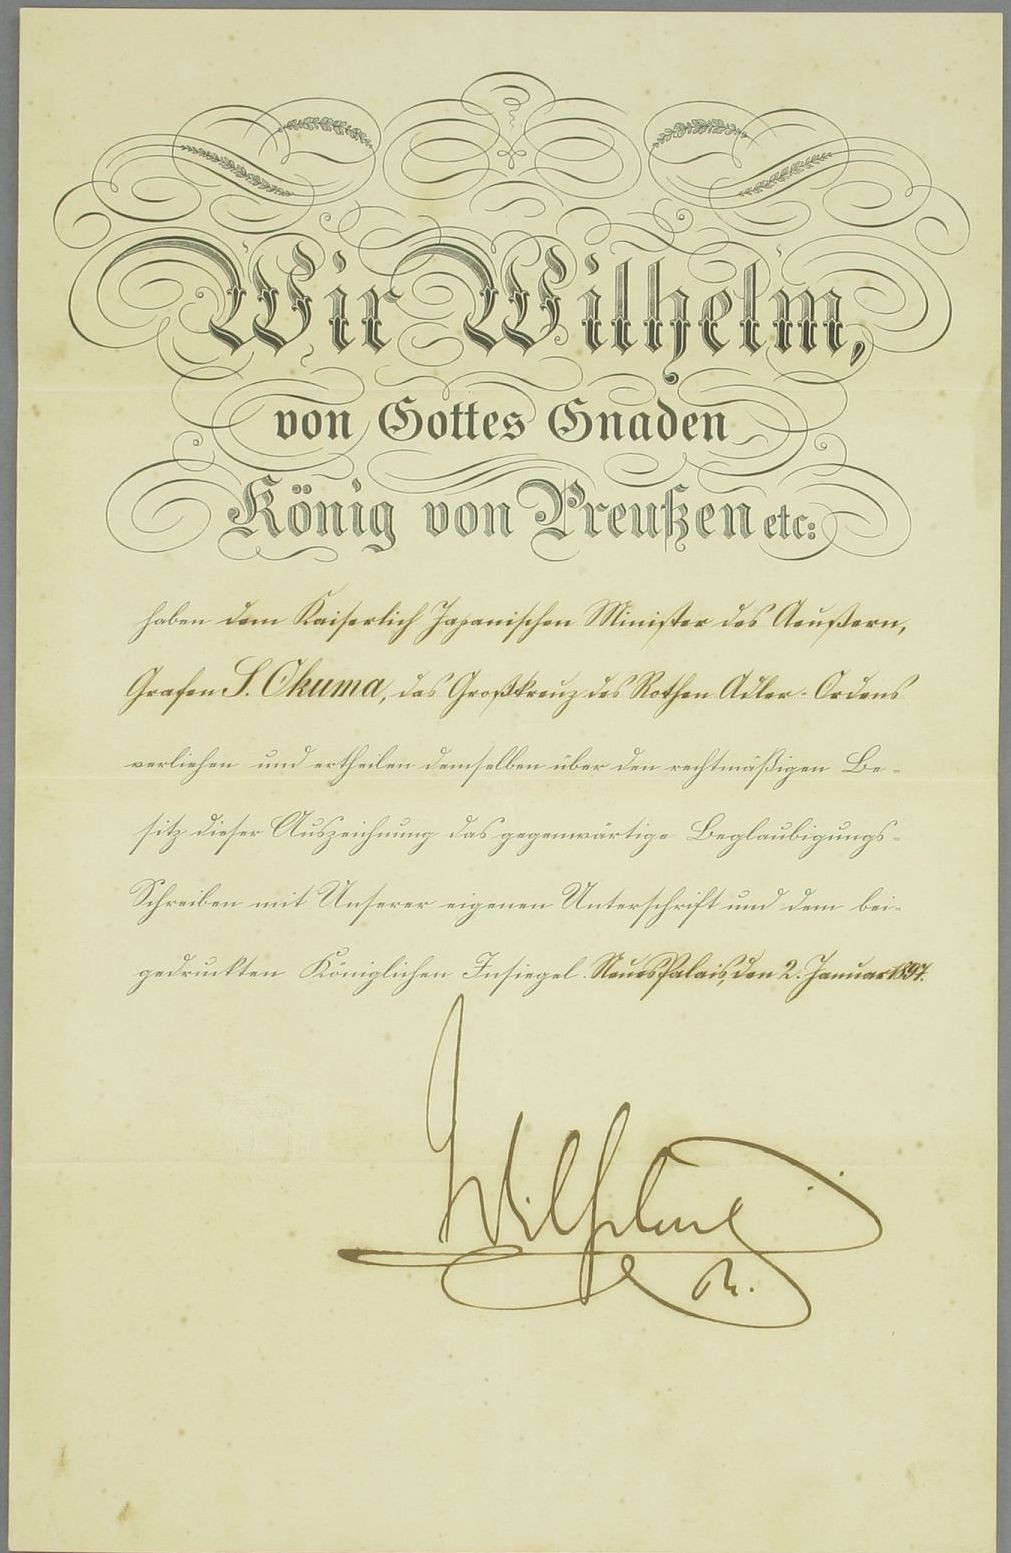 Wir Wilhelm,
von Gottes Gnaden
König von Preußen etc:
haben dem Kaiserlich Japanischen Minister des Aeußern,
Grafen S. Okuma, das Großkreuz des Rothen Adler-Ordens
verliehen und ertheilen demselben über den rechtmäßigen Be-
sitz dieser Auszeichnung das gegenwärtige Beglaubigungs-
Schreiben mit Unserer eigenen Unterschrift und dem bei-
gedruckten Königlichen Insiegel. Neues Palais, den 2. Januar 1897.
Wilhelm
R.